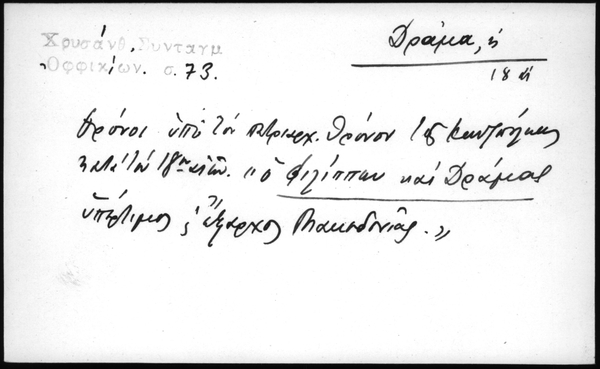 Χρυσάνθ, Συνταγμ
Ὀφφικίων. σ. 73.
Δράμα, ἡ
18 ἡ
Θρόνοι ὑπὸ τὸν πατριαρχ. Θρόνον τῆς Κων)πόλεως
κατὰ τὸν 18ον αἰῶν. "ὁ Φιλίππων καὶ Δράμας
ὑπέρτιμος ἔξαρχος Μακεδονίας."